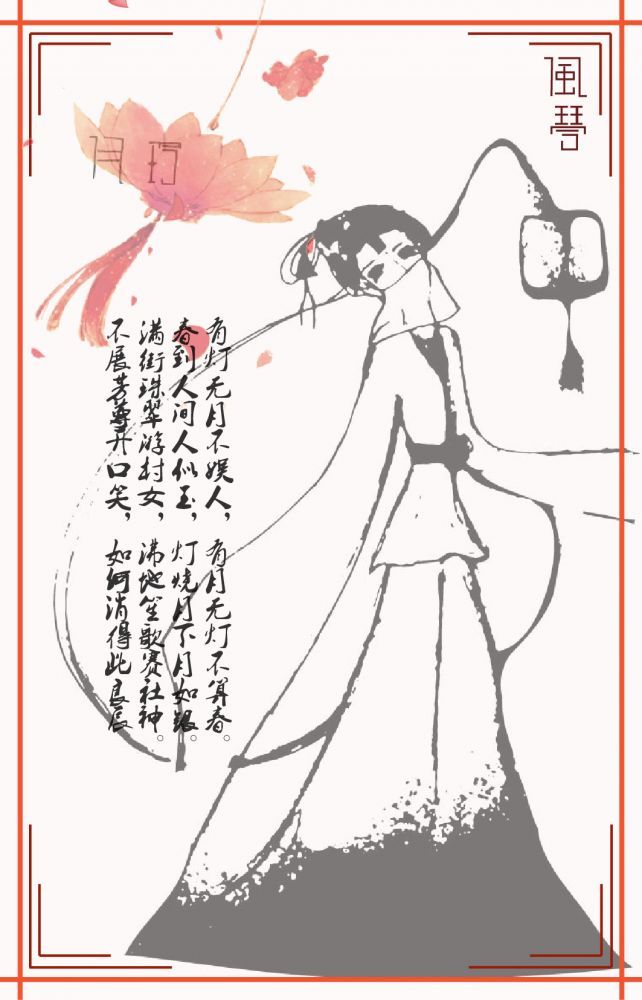 風琴
有灯无月不娱人，有月无灯不算春。
春到人间人似玉，灯烧月下月如银。
满街珠翠游村女，沸地笙歌赛社神。
不展芳尊开口笑，如何消得此良辰